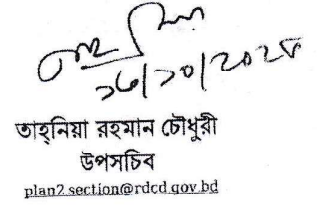 ১৬/১০/২০২৫
তাহ্‌নিয়া রহমান চৌধুরী
উপসচিব
plan2.section@rdcd.gov.bd